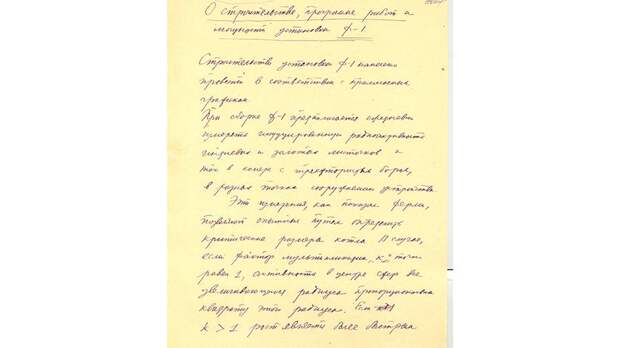 О строительстве, программе работ и
мощности установки Ф-1
Строительство установки Ф-1 намечено
провести в соответствии с прилагаемым
графиком.
При сборке Ф-1 предполагается ежедневно
измерять индуцированную радиоактивность
индиевых и золотых листочков и
ток в камере с трехфтористым бором,
в разных точках сооружаемого устройства.
Эти измерения, как показал Ферми,
позволяют опытным путем определить
критические размеры котла. В случае,
если фактор мультипликации, "к" точно
равен 1, активность в центре сфер все
увеличивающегося радиуса пропорциональна
квадрату этого радиуса. При
k > 1 рост является более быстрым